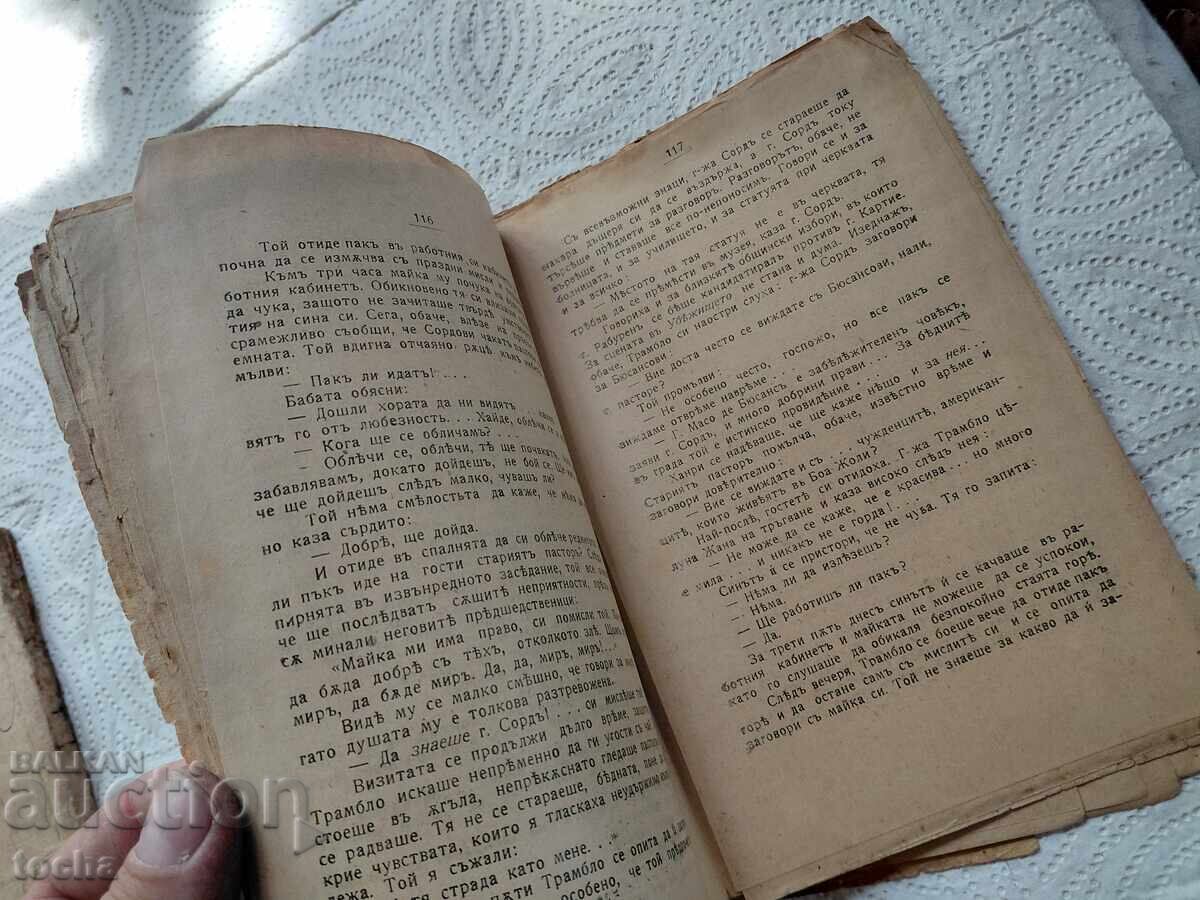 116
Той отиде пакъ въ работния си кабинет
почна да се измѫчва съ праздни мисли
Къмъ три часа майка му почука на
ботния кабинетъ. Обикновено тя си
да чука, защото не зачиташе твърде
тия на сина си. Сега, обаче, влѣзе на
срамежливо съобщи, че Сордови чакатъ
емната. Той вдигна отчаяно рѫце къмъ
мълви:
— Пакъ ли идатъ! . . .
Бабата обясни:
— Дошли хората да ни видятъ . .
вятъ го отъ любезность. . . Хайде, облѣчи се
— Кога ще се обличамъ? . . .
— Облѣчи се, облѣчи, тѣ ще почакатъ
забавлявамъ, докато дойдешъ, не бой се.
че ще дойдешъ слѣдъ малко, чувашъ ли?
Той нѣма смѣлостьта да каже, че нѣма
но каза сърдито:
— Добрѣ, ще дойда.
И отиде въ спалнята да си облѣче
ли пъкъ иде на гости стариятъ пасторъ?
пирнята въ извънредното заседание, той все
че ще последватъ сѫщитѣ неприятности,
сѫ минали неговитѣ прѣдшедственици:
«Майка ми има право, си помисли той.
да бѫда добрѣ съ тѣхъ, отколкото злѣ.
миръ, да бѫде миръ. Да, да, миръ, миръ!...»
Видѣ му се малко смѣшно, че говори за
гато душата му е толкова разтревожена.
— Да знаеше г. Сордъ! . . .
Визитата се продължи дълго врѣме,
Трамбло искаше непрѣменно да ги угости съ
стоеше въ ѫгъла, непрѣкѫснато гледаше
се радваше. Тя не се стараеше, бѣдната,
крие чувствата, които я тласкаха неудържимо
дежа. Той я съжали:
тя страда като мене. . .
пѫти Трамбло се опита да ѝ
особено, че той
117
Съ всевъзможни знаци, г-жа Сордъ се стараеше да
накара дъщеря си да се въздържа, а г. Сордъ току
търсѣше прѣдмети за разговоръ. Разговорътъ, обаче, не
вървѣше и ставаше все по-непоносимъ. Говори се и за
болницата, и за училището, и за статуята при черквата
и за всичко:
— Мѣстото на тая статуя не е въ черквата, тя
трѣбва да се прѣмѣсти въ музея, каза г. Сордъ.
Говориха и за близкитѣ общински избори, въ които
г. Рабуренъ се бѣше кандидатиралъ противъ г. Картие.
За сцената въ Убѣжището не стана и дума. Изеднажъ,
обаче, Трамбло си наостри слуха: г-жа Сордъ заговори
за Бюсансови:
— Вие доста често се виждате съ Бюсансови, нали,
пасторе?
Той промълви:
— Не особено често, госпожо, но все пакъ се
виждаме отврѣме наврѣме. . .
— Г. Масо де Бюсансъ е забѣлѣжителенъ човѣкъ,
заяви г. Сордъ, и много добрини прави. . . За бѣднитѣ
въ града той е истинско провидѣние. . .
Ханри се надѣваше, че ще каже нѣщо и за нея. . .
Стариятъ пасторъ помълча, обаче, известно врѣме и
заговори довѣрително:
— Вие се виждате и съ . . . чужденцитѣ, американ-
щитѣ, които живѣятъ въ Боа Жоли?
Най-послѣ, гоститѣ си отидоха. Г-жа Трамбло цѣ-
луна Жана на тръгване и каза високо слѣдъ нея:
— Не може да се каже, че е красива. . . но много
е мила . . . и никакъ не е горда! . . .
Синътъ ѝ се пристори, че не чува. Тя го запита:
— Нѣма ли да излѣзешъ?
— Нѣма.
— Ще работишъ ли пакъ?
— Да.
За трети пѫть днесъ синътъ ѝ се качваше въ ра-
ботния кабинетъ и майката не можеше да се успокои,
като го слушаше да обикаля безпокойно стаята горѣ.
Слѣдъ вечеря, Трамбло се боеше вече да отиде пакъ
горѣ и да остане самъ съ мислитѣ си и се опита да
заговори съ майка си. Той не знаеше за какво да ѝ за-
BALKAN
auction
tocha